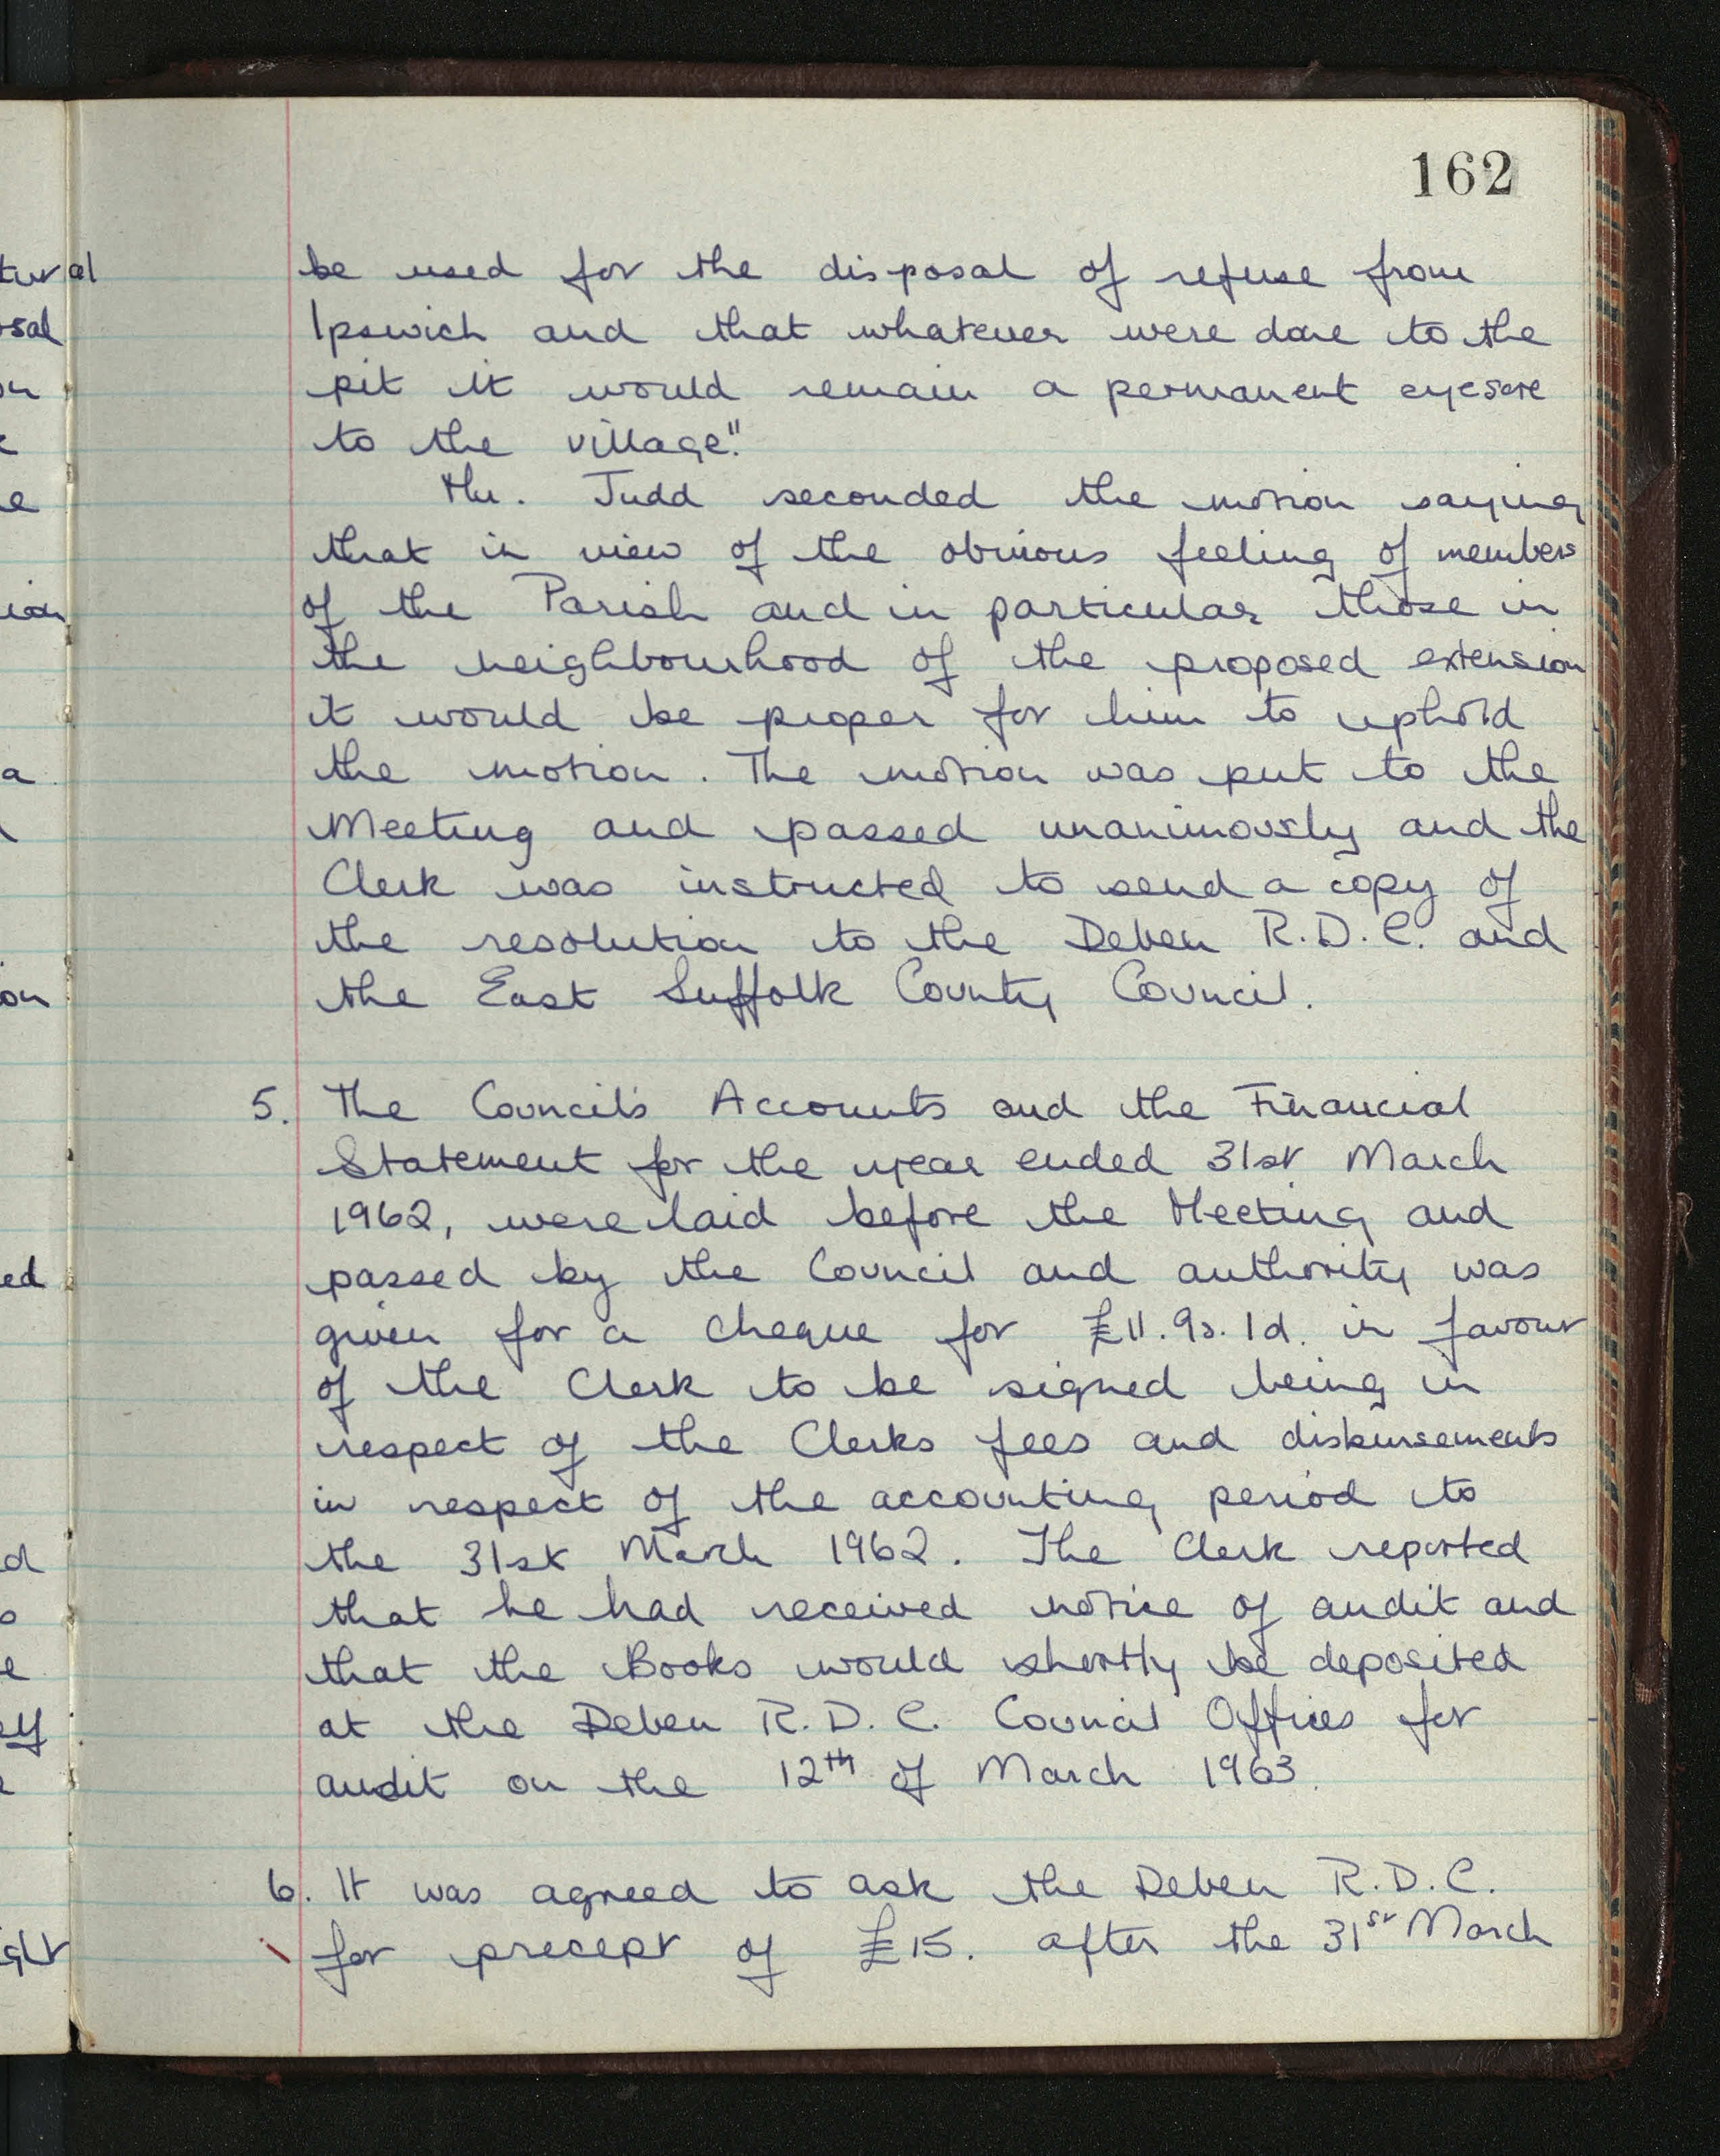 162
be used for the disposal of refuse from
Ipswich and that whatever were done to the
pit it would remain a permanent eyesore
to the village."
Mr. Judd seconded the motion saying
that in view of the obvious feeling of members
of the Parish and in particular those in
the neighbourhood of the proposed extension
it would be proper for him to uphold
the motion. The motion was put to the
Meeting and passed unanimously and the
Clerk was instructed to send a copy of
the resolution to the Deben R.D.C. and
the East Suffolk County Council.
5. The Council's Accounts and the Financial
Statement for the year ended 31st March
1962, were laid before the Meeting and
passed by the Council and authority was
given for a cheque for £11.9s.1d. in favour
of the Clerk to be signed being in
respect of the Clerks fees and disbursements
in respect of the accounting period to
the 31st March 1962. The Clerk reported
that he had received notice of audit and
that the Books would shortly be deposited
at the Deben R.D.C. Council Offices for
audit on the 12th of March 1963.
6. It was agreed to ask the Deben R.D.C.
for precept of £15. after the 31st March